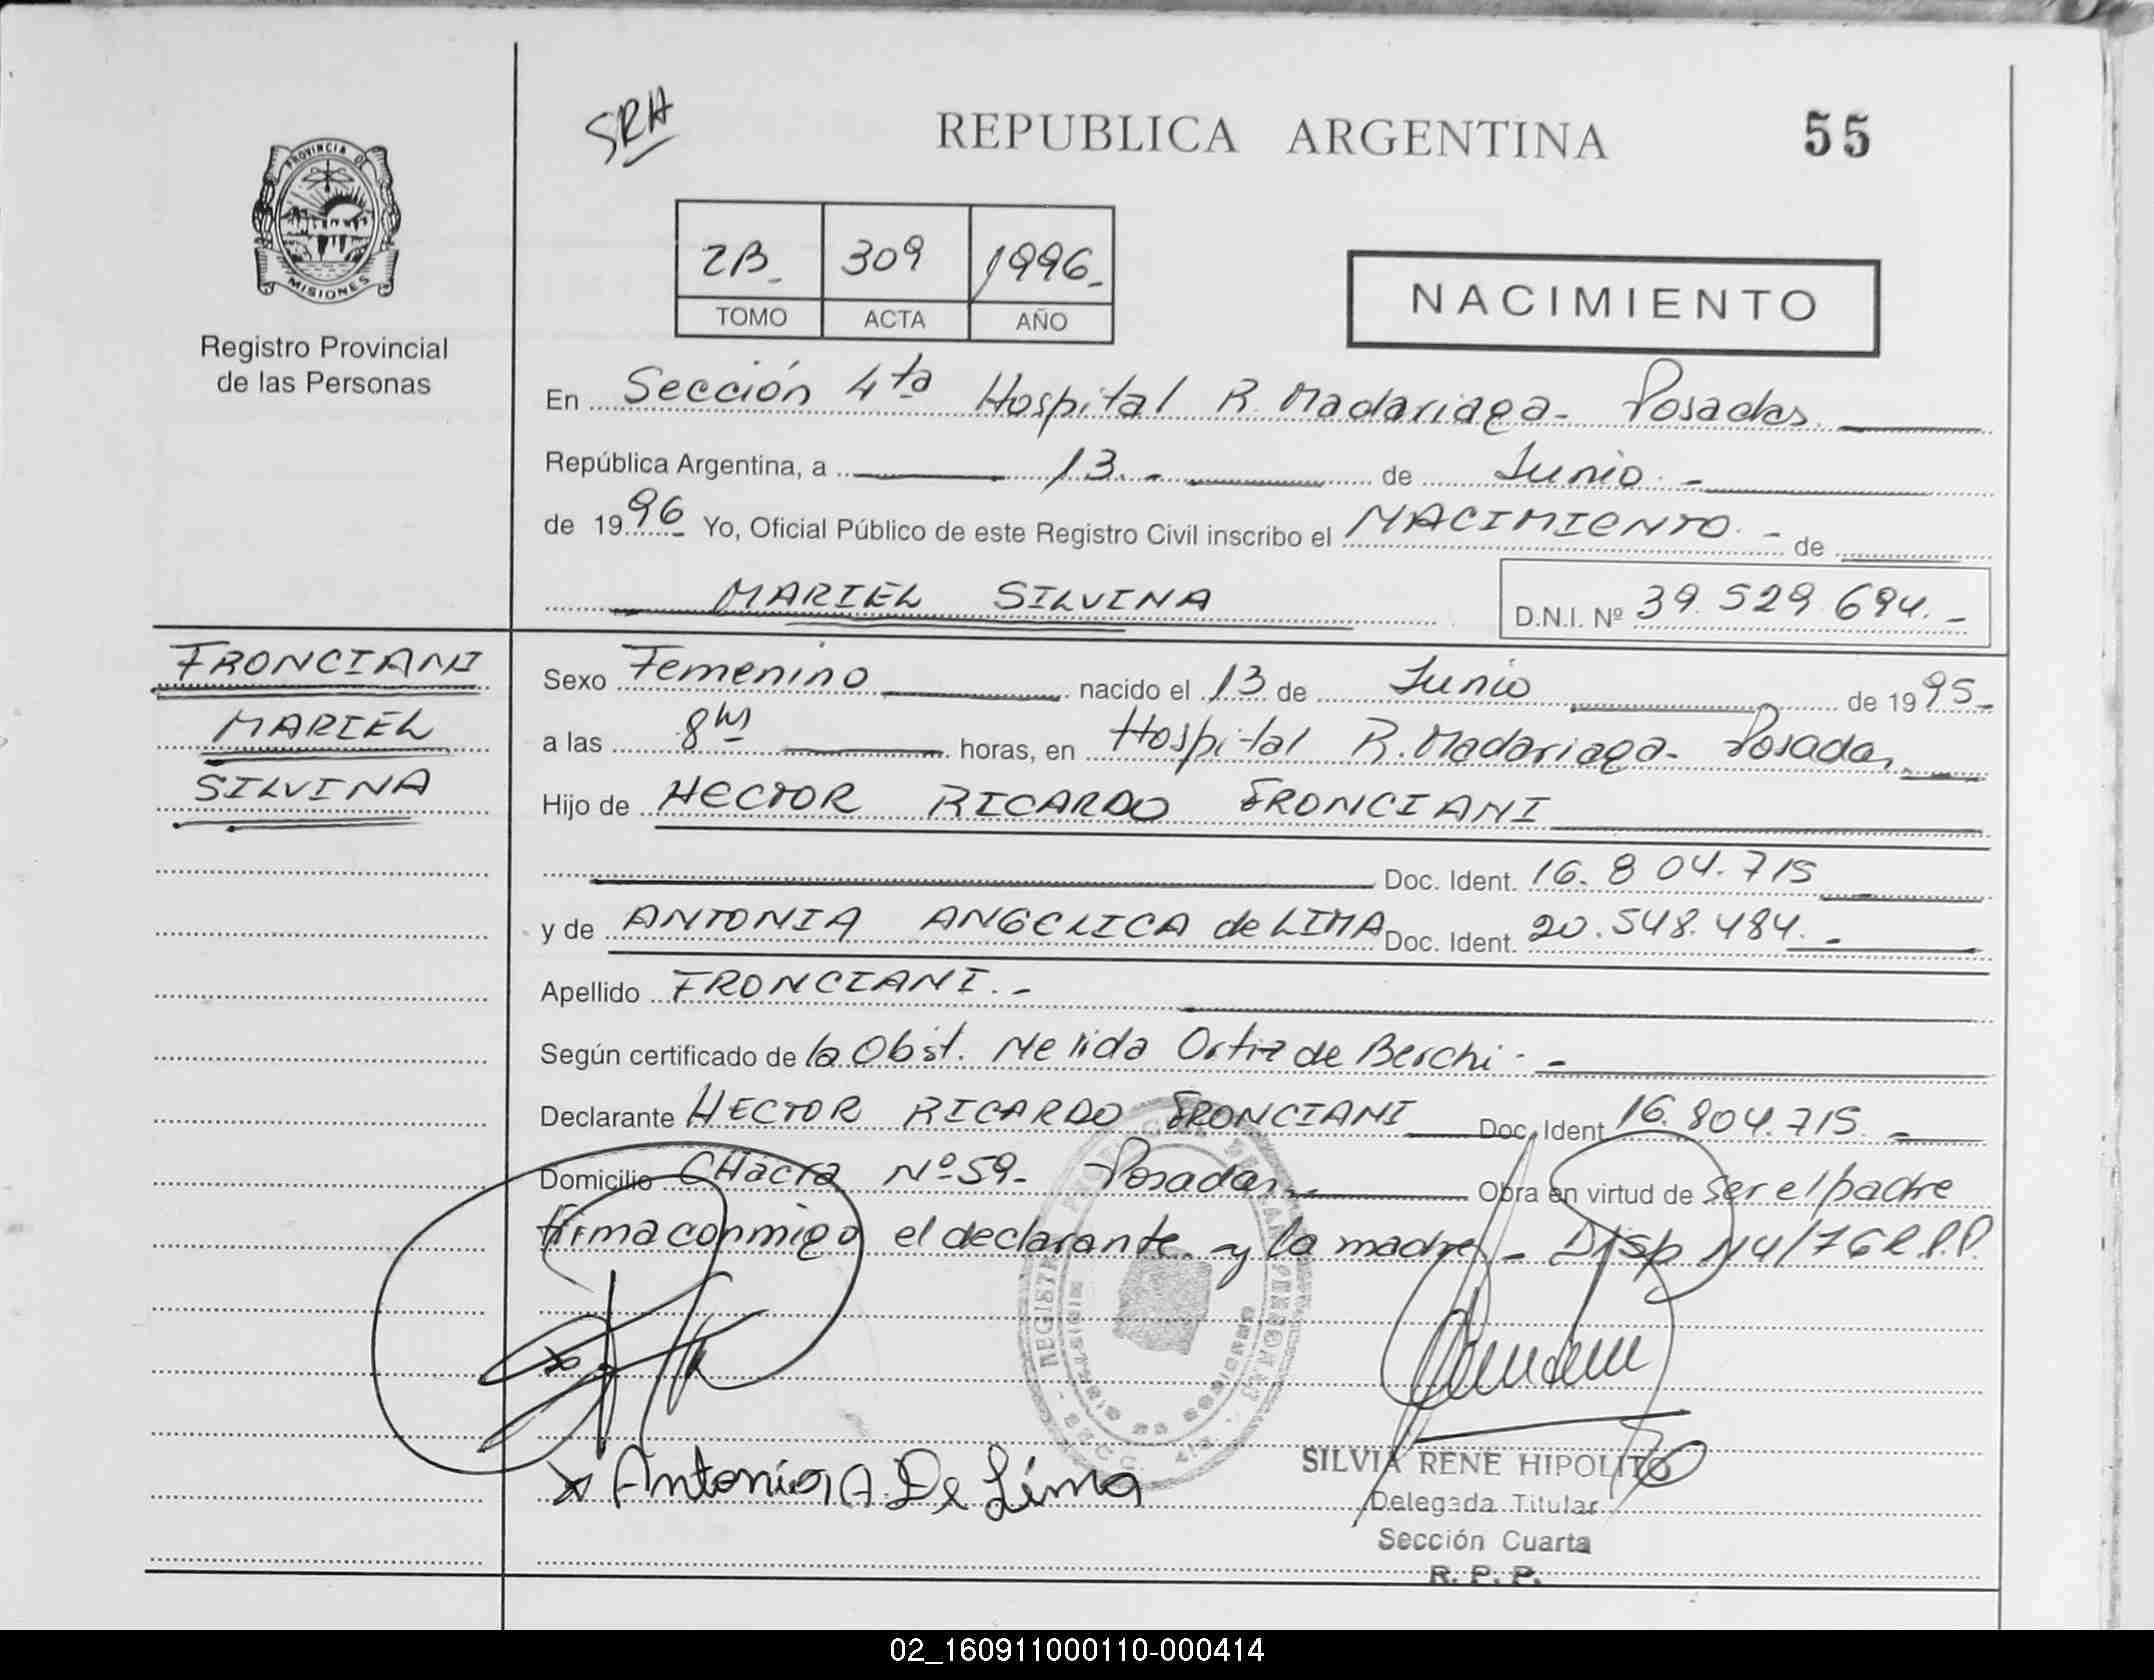 SRH
REPUBLICA ARGENTINA
55
PROVINCIA DE
MISIONES
Registro Provincial
de las Personas
2B_ 309 1996_
TOMO ACTA AÑO
NACIMIENTO
En Sección 4ta Hospital R. Madariaga- Posadas
República Argentina, a 13.- de Junio.-
de 1996 Yo, Oficial Público de este Registro Civil inscribo el NACIMIENTO.- de
MARIEL SILVINA
D.N.I. Nº 39.529.694.-
FRONCIANI
MARIEL
SILVINA
Sexo Femenino nacido el 13 de Junio de 1995-
a las 8hs horas, en Hospital R. Madariaga- Posadas
Hijo de HECTOR RICARDO FRONCIANI
Doc. Ident. 16.804.715
y de ANTONIA ANGELICA de LIMA Doc. Ident. 20.548.484.-
Apellido FRONCIANI.-
Según certificado de la Obst. Nelida Ortiz de Berchi.-
Declarante HECTOR RICARDO FRONCIANI Doc. Ident 16.804.715.-
Domicilio CHacra Nº 59- Posadas Obra en virtud de Ser el padre
firma conmigo el declarante y la madre - Disp 114/76 R.P.P.
x
x Antonia A. De Lima
SILVIA RENE HIPOLITO
Delegada Titular
Sección Cuarta
R. P. P.
02_160911000110-000414